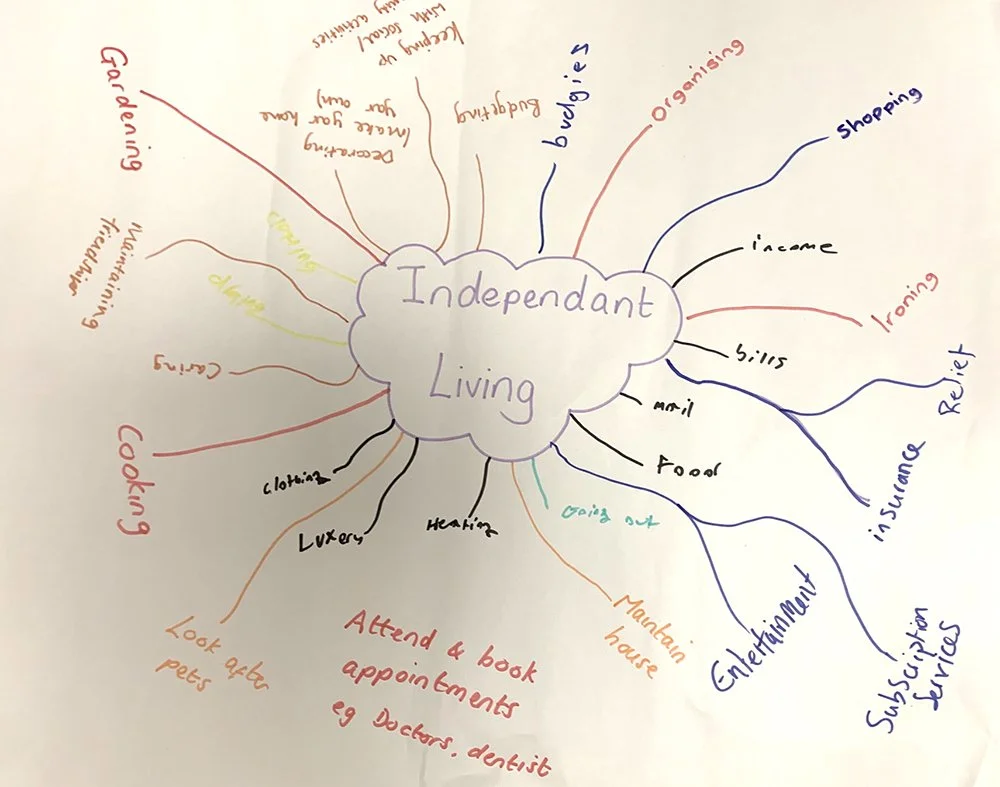 Independant
Living
budgies
Organising
shopping
income
Ironing
bills
Relief
insurance
mail
Food
Going out
Entertainment
Subscription
Services
Maintain
house
Heating
Luxery
Clothing
Look after
pets
Attend & book
appointments
eg Doctors, dentist
Cooking
Caring
Maintaining
friendships
cleaning
Gardening
Decorating
(make your home
your own)
Keeping up
with social/
activities
Budgeting